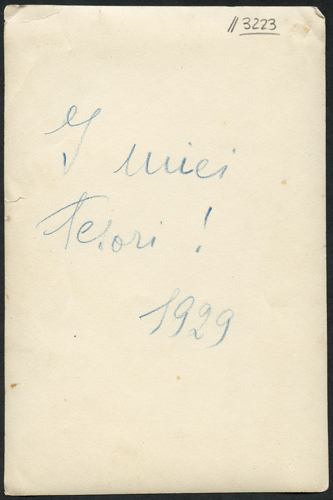 113223
I miei
Tesori!
1929